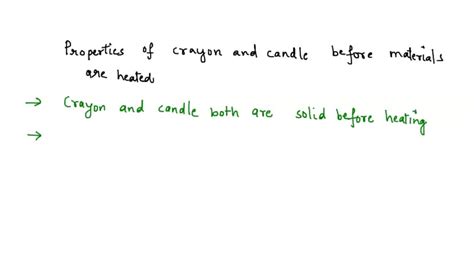 Properties of crayon and candle before materials
are heated
→ Crayon and candle both are solid before heating
→